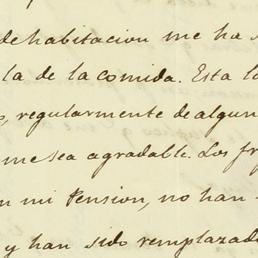 de habitacion me ha s
la de la comida. Esta la
, regularmente de algun
me sea agradable. Los fr
n mi Pension, no han
y han sido remplazado